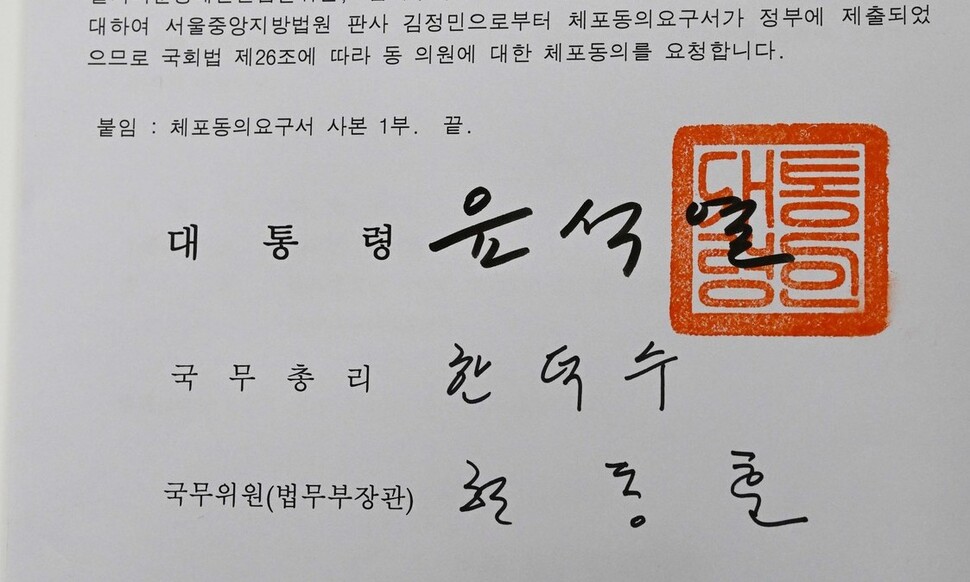 대하여 서울중앙지방법원 판사 김정민으로부터 체포동의요구서가 정부에 제출되었
으므로 국회법 제26조에 따라 동 의원에 대한 체포동의를 요청합니다.
붙임 : 체포동의요구서 사본 1부. 끝.
대통령 윤석열
대통령의인
국무총리 한덕수
국무위원(법무부장관) 한동훈